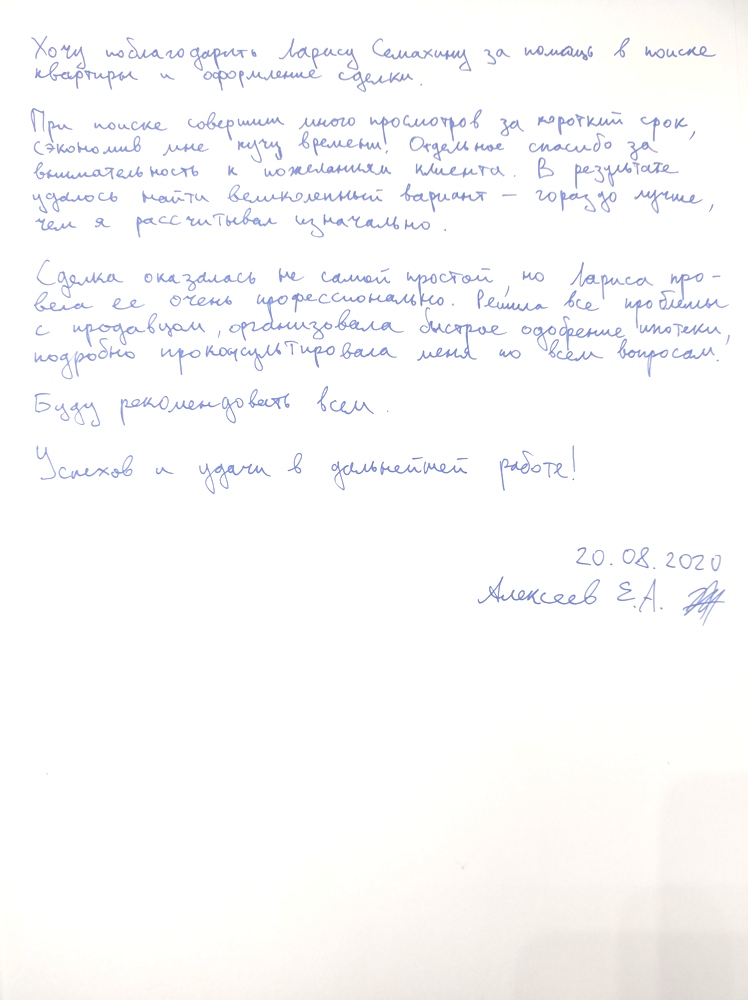 Хочу поблагодарить Ларису Семахину за помощь в поиске
квартиры и оформление сделки.
При поиске совершили много просмотров за короткий срок,
сэкономив мне кучу времени! Отдельное спасибо за
внимательность к пожеланиям клиента. В результате
удалось найти великолепный вариант – гораздо лучше,
чем я рассчитывал изначально.
Сделка оказалась не самой простой, но Лариса про-
вела ее очень профессионально. Решила все проблемы
с продавцом, организовала быстрое одобрение ипотеки,
подробно проконсультировала меня по всем вопросам.
Буду рекомендовать всем.
Успехов и удачи в дальнейшей работе!
20.08.2020
Алексеев Е.А.